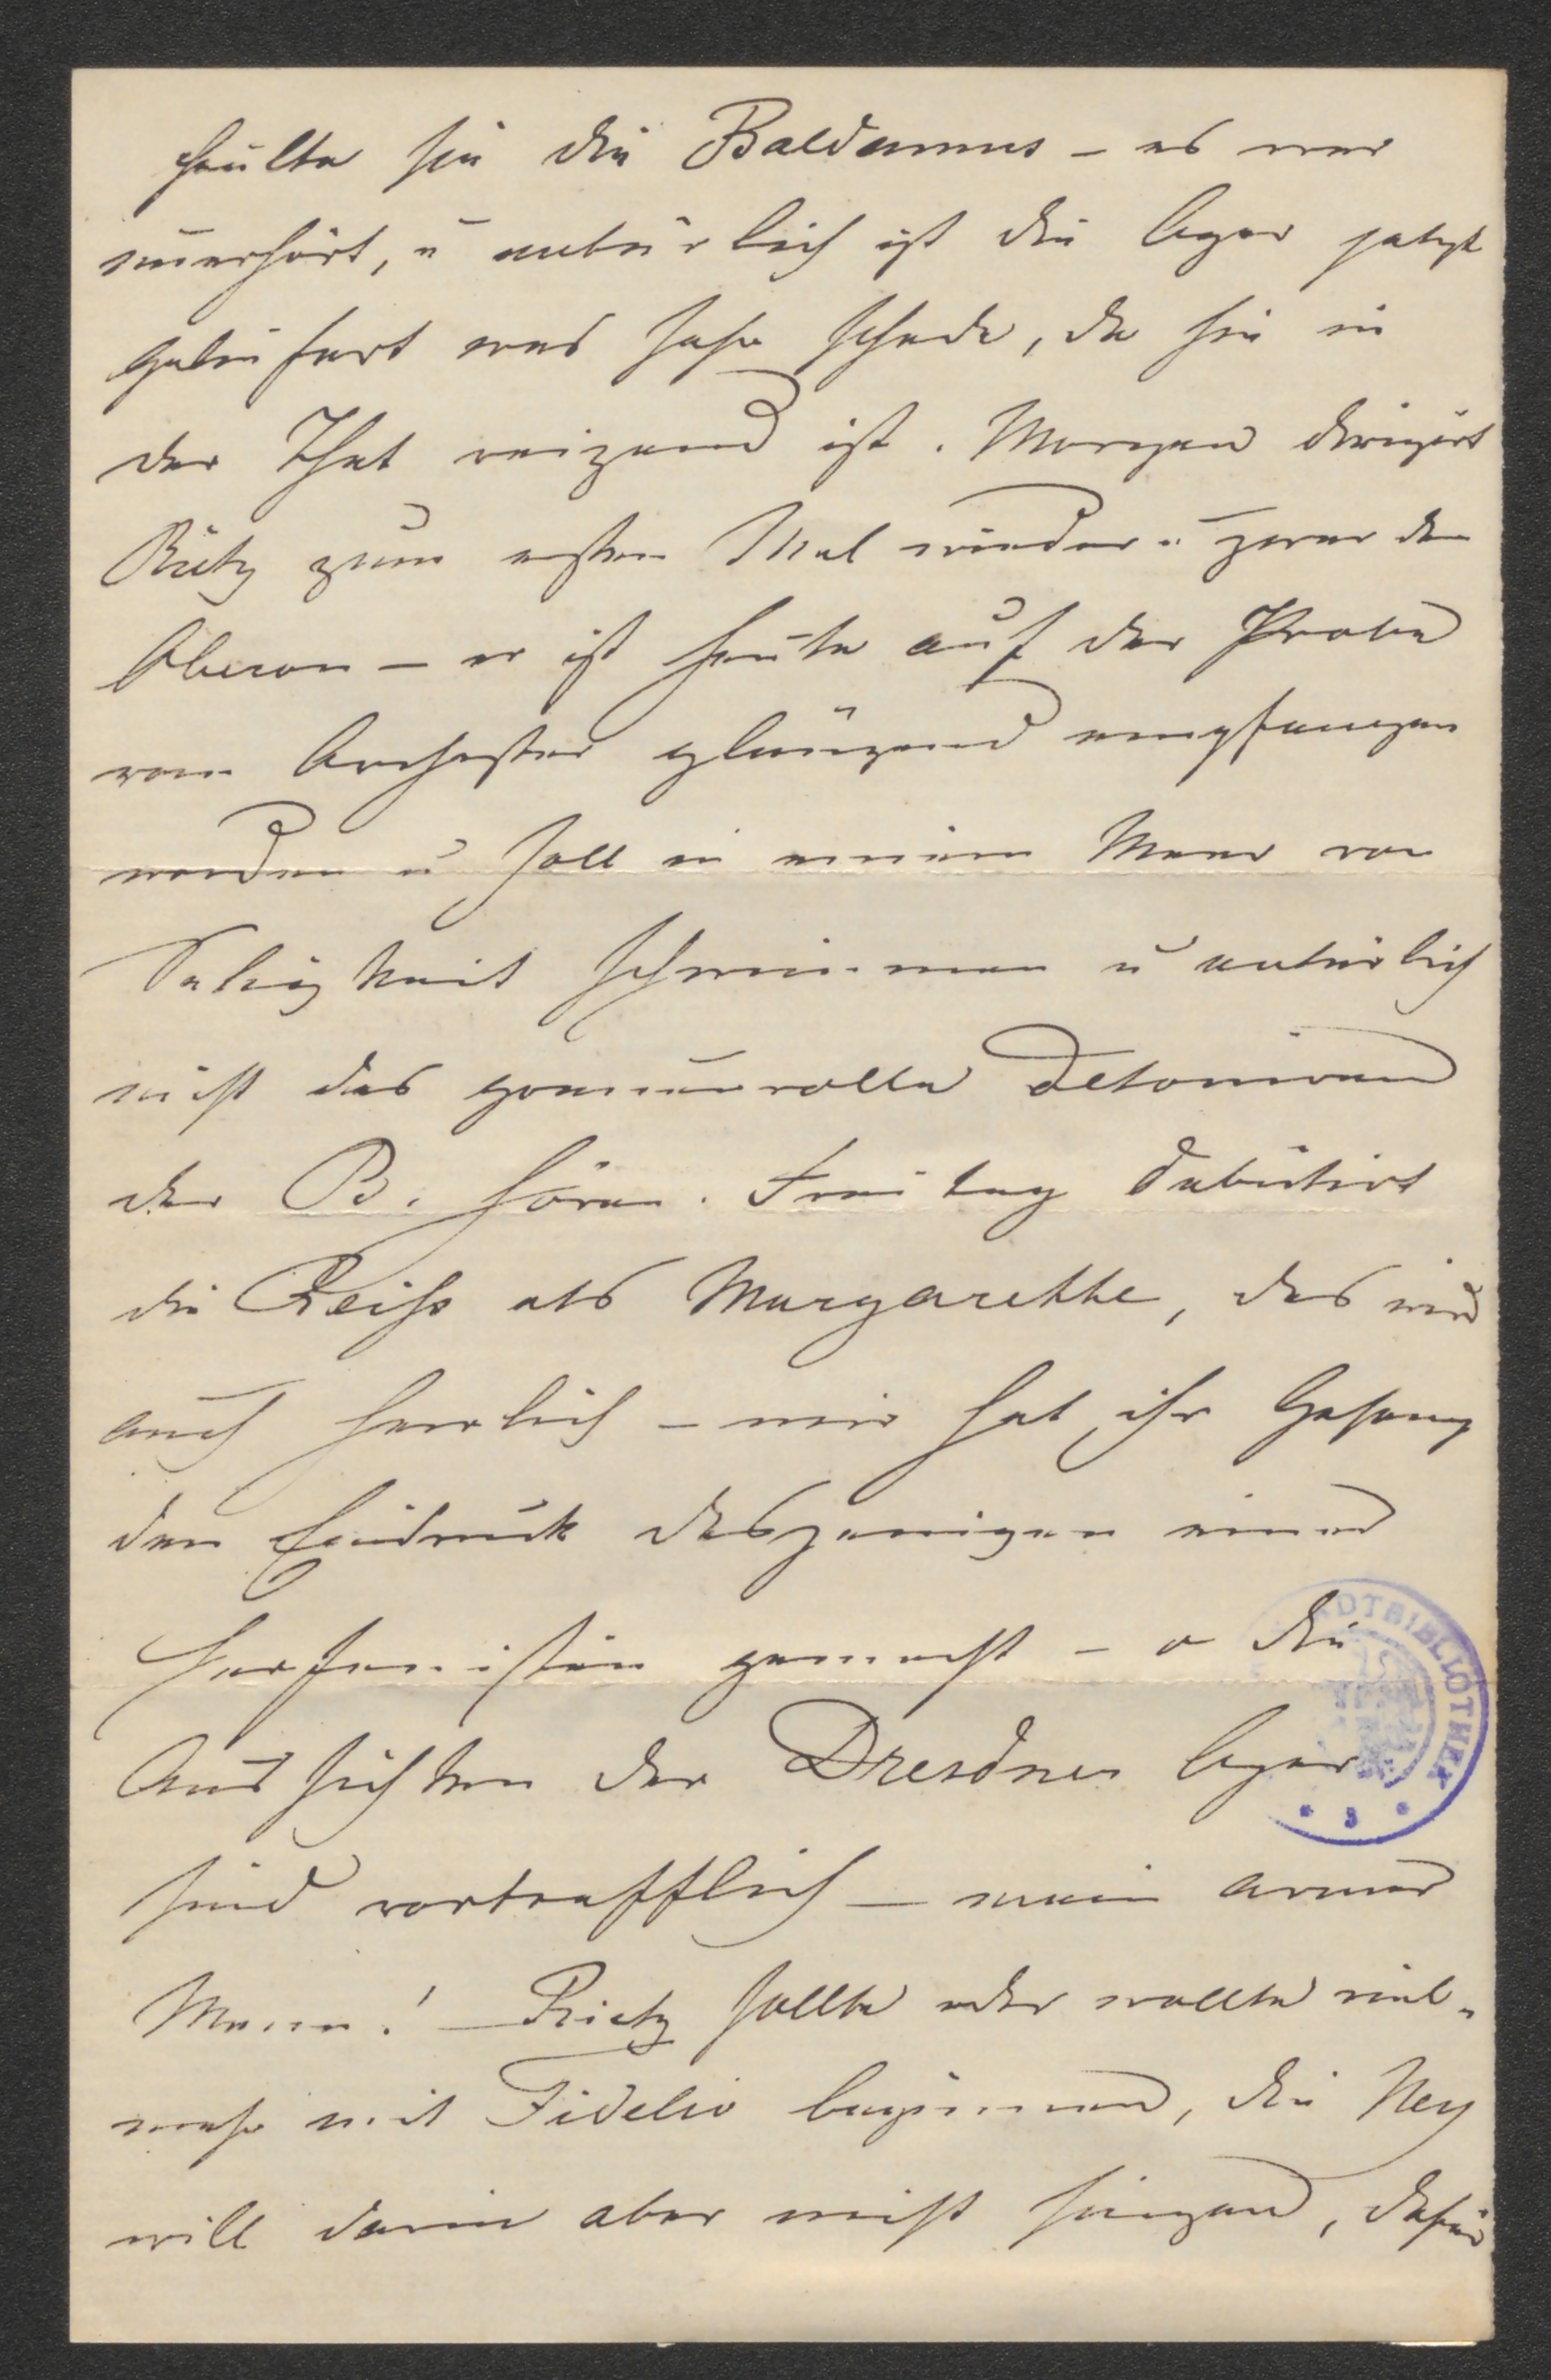 heulte sie die Baldamus – es war
unerhört, u natürlich ist die Oper jetzt
geliefert was sehr schade, da sie in
der That reizend ist. Morgen dirigirt
Rietz zum ersten Mal wieder u zwar den
Oberon – er ist heute auf der Probe
vom Orchester glänzend empfangen
worden u soll in einem Meer von
Seligkeit schwimmen u natürlich
nicht das grauenvolle Detoniren
der B. hören. Freitag debütirt
die Reiss als Margarethe, das wird
auch herrlich – mir hat ihr Gesang
den Eindruck desjenigen einer
Harfenistin gemacht – o die
Aussichten der Dresdner Oper
sind vortrefflich – mein armer
Mann! – Rietz sollte oder wollte viel-
mehr mit Fidelio beginnen, die Ney
will darin aber nicht singen, dafür
DTBIBLIOTHEK